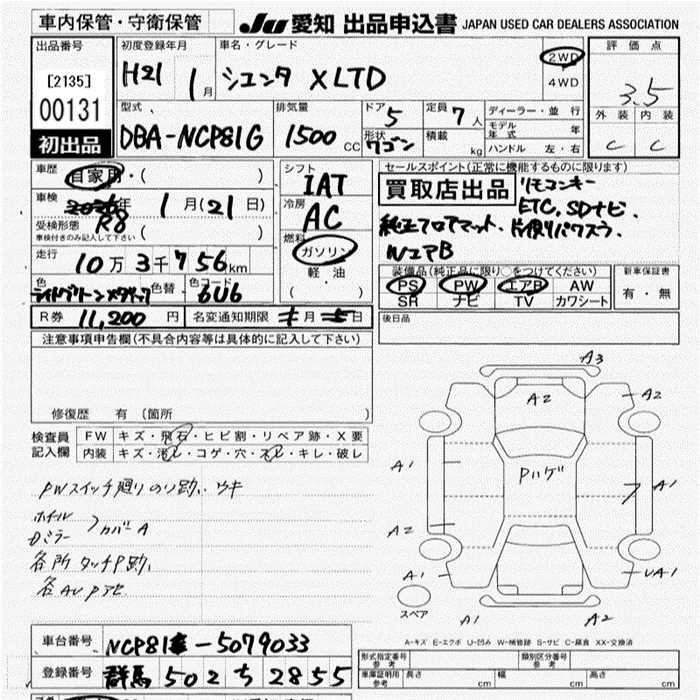 車内保管・守衛保管
JU 愛知 出品申込書 JAPAN USED CAR DEALERS ASSOCIATION
出品番号
[2135]
00131
初出品
初度登録年月
H21 1 月
車名・グレード
シエンタ XLTD
2WD
4WD
評価点
3.5
外装 内装
C C
型式
DBA-NCP81G
排気量
1500 CC
ドア 5
形状 ワゴン
定員 7 人
積載 kg
ディーラー・並行
モデル年式 年
ハンドル 左・右
車歴
自家用・( )
車検
年 1 月(21 日)
R8
受検形態
車検付きのみ記入して下さい
( )
走行
10 万 3 千 756 km
色
色替
色コード
6U6
シフト
IAT
冷房
AC
燃料
ガソリン
軽油
( )
セールスポイント(正常に機能するものに限ります)
買取店出品
リモコンキー
ETC, SDナビ.
純正フロアマット. 片側パワスラ.
WエアB
装備品(純正品に限り○をつけてください)
PS PW エアB AW
SR ナビ TV カワシート
新車保証書
有・無
R券 11,200 円
名変通知期限 月 日
後日品
注意事項申告欄(不具合内容等は具体的に記入して下さい)
修復歴 有 (箇所
検査員記入欄
FW キズ・飛石・ヒビ割・リペア跡・X要
内装 キズ・汚レ・コゲ・穴・スレ・キレ・破レ
PWスイッチ廻りのり跡. ウキ
ホイル
Dミラー
カバーA
各所 タッチP跡.
A3
A2
A2
A1
Pハゲ
A1
A2
A1
UA1
スペア
A1
A2
A-キズ E-エクボ U-凹み W-補修跡 S-サビ C-腐食 XX-交換済
車台番号 NCP81-5079033
登録番号 群馬 502 ち 2855
形式指定番号 参考
類別区分番号 参考
車庫証明用 参考
長さ cm 幅 cm 高さ cm